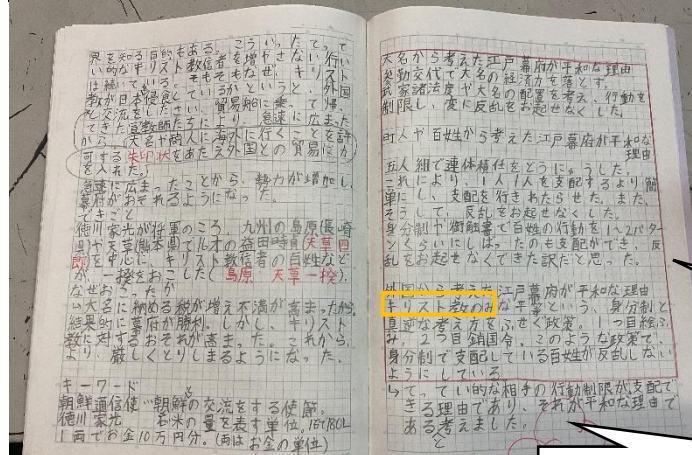 界を知る目的もある。こういった、てって
い的なキリスト教信者を増やさない行い
は続いている。そもそもなぜ、キリスト
教が日本侵食しているかというと、外国
と交流をしたい、貿易船に乗って帰っ
てきた宣教師たちにより、急速に広まった
から。大名や商人に海外に行くことを許
可する朱印状をあたえ外国との貿易に力
を入れた。
急速に広まったことから、勢力が増加し、
幕府がおそれるようになった。
できごと
徳川家光が将軍のころ、九州の島原(長崎
県)や天草(熊本県)で16才の益田時貞(天草四
郎)を中心に、キリスト教信者の百姓など
が一揆をおこした(島原 天草一揆)。
なぜおこったか
↳大名に納める税が増え不満が高まったから。
結果的に幕府が勝利。しかし、キリスト
教に対するおそれが高まった。これから、
より、厳しくとりしまるようになった。
キーワード
朝鮮通信使…朝鮮との交流をする使節。
徳川家光 石米の量を表す単位。1石180L
1両でお金10万円分。(両はお金の単位)
大名から考えた江戸幕府が平和な理由
参勤交代で大名の経済力を落とす。
武家諸法度や大名の配置を考え、行動を
制限し、変に反乱をお起せなくした。
町人や百姓から考えた江戸幕府が平和な
理由
五人組で連体積任をどうにゅうした。
これにより、1人1人を支配するより簡
単にし、支配を行きわたらせた。また、
そうして、反乱をお起せなくした。
身分制や御触書で百姓の行動を1〜2パター
ンくらいにしばったのも支配ができ、反
乱をお起せなくできた訳だと思った。
外国から考えた江戸幕府が平和な理由
キリスト教のみな平等という、身分制と
真逆な考え方をふせぐ政策。1つ目絵ふ
み、2つ目鎖国令。このような政策で、
身分制で支配している百姓が反乱しない
ようにしている。
↳てってい的な相手の行動制限が支配で
きる理由であり、それが平和な理由で
あると考えました。